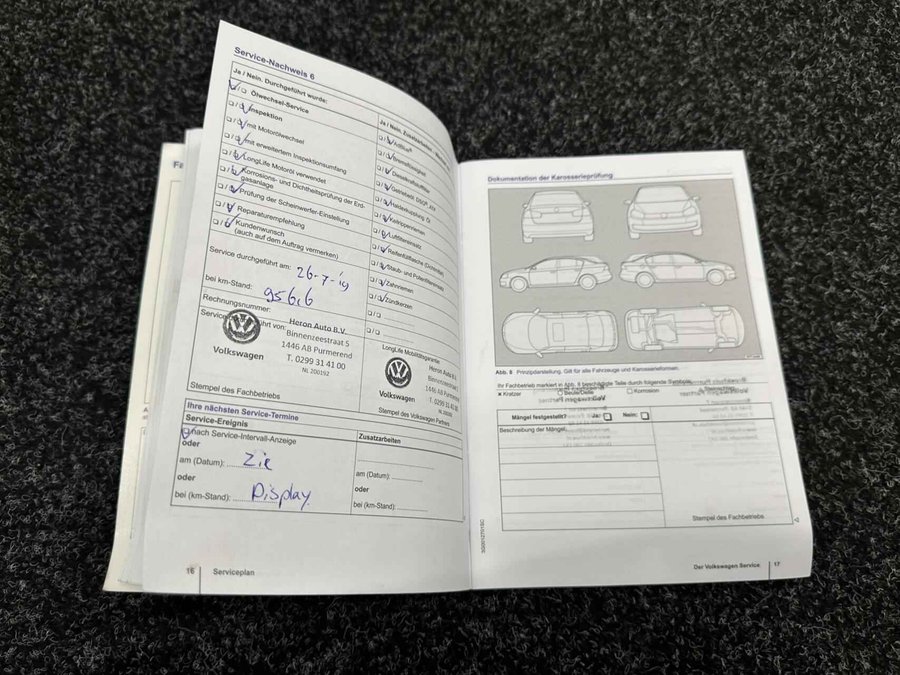 Service-Nachweis 6
Ja / Nein. Durchgeführt wurde:
Ölwechsel-Service
Inspektion
mit Motorölwechsel
mit erweitertem Inspektionsumfang
LongLife Motoröl verwendet
Korrosions- und Dichtheitsprüfung der Erd-
gasanlage
Prüfung der Scheinwerfer-Einstellung
Reparaturempfehlung
Kundenwunsch
(auch auf dem Auftrag vermerken)
Ja / Nein. Zusatzarbeiten
AdBlue®
Bremsflüssigkeit
Dieselkraftstofffilter
Getriebeöl DSG®
Haldexkupplung Öl
Keilrippenriemen
Luftfiltereinsatz
Reifenfüllflasche (Dichtmittel)
Staub- und Pollenfiltereinsatz
Zahnriemen
Zündkerzen
Service durchgeführt am: 26-7-19
bei km-Stand: 95616
Rechnungsnummer:
Volkswagen
Heron Auto B.V.
Binnenzeestraat 5
1446 AB Purmerend
T. 0299 31 41 00
NL 200192
Stempel des Fachbetriebs
LongLife Mobilitätsgarantie
Volkswagen
Heron Auto B.V.
Binnenzeestraat
1446 AB Purmerend
T. 0299 31 41 00
Stempel des Volkswagen Partners
Ihre nächsten Service-Termine
Service-Ereignis
nach Service-Intervall-Anzeige
oder
am (Datum): Zie
oder
bei (km-Stand): Display
Zusatzarbeiten
am (Datum):
oder
bei (km-Stand):
16 Serviceplan
Dokumentation der Karosserieprüfung
Abb. 8 Prinzipdarstellung. Gilt für alle Fahrzeuge und Karosserieformen.
Ihr Fachbetrieb markiert in Abb. 8 beschädigte Teile durch folgende Symbole:
Kratzer Beule/Delle Korrosion Steinschlag
Mängel festgestellt? Ja: Nein:
Beschreibung der Mängel:
Stempel des Fachbetriebs
Der Volkswagen Service 17